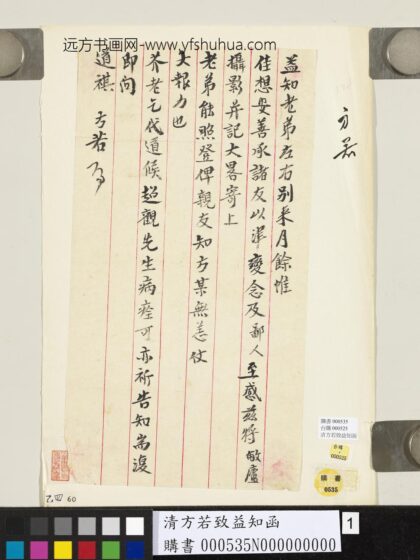 远方书画网-www.yfshuhua.com
方若
益知老弟左右别来月餘惟
佳想安善承諸友以津變念及鄙人至感兹將敝廬
攝影并記大畧寄上
老弟能照登俾親友知方某無恙仗
大報力也
芥老乞代道候超觀先生病痊可亦祈告知耑復
即问
道祺 方若
購書 000535
清方若致益知函
000535
購書
0535
60
清方若致益知函
購書 000535N000000000
1